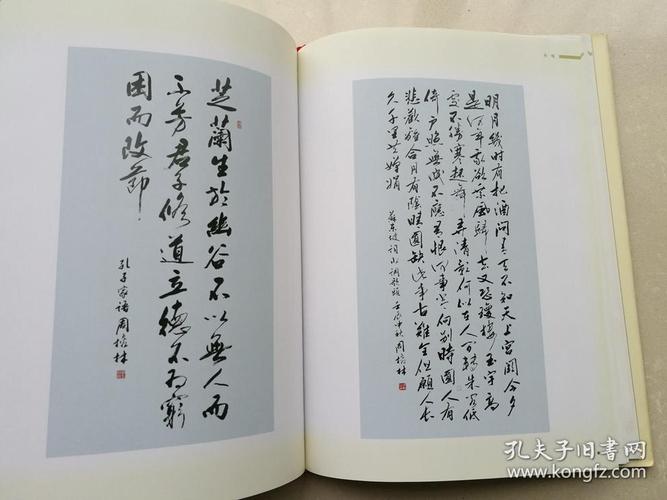 芝蘭生於幽谷不以無人而
不芳君子修道立德不为窮
困而改節
孔子家語周培林
明月幾时有把酒問青天不知天上宮闕今夕
是何年我欲乘風歸去又恐瓊樓玉宇高
處不勝寒起舞弄清影何似在人间轉朱阁低
倚户照無眠不應有恨何事长向别時圆人有
悲歡離合月有陰晴圆缺此事古難全但願人长
久千里共嬋娟 蘇东坡词水調歌頭 壬辰中秋周培林
孔夫子旧书网
www.kongfz.com